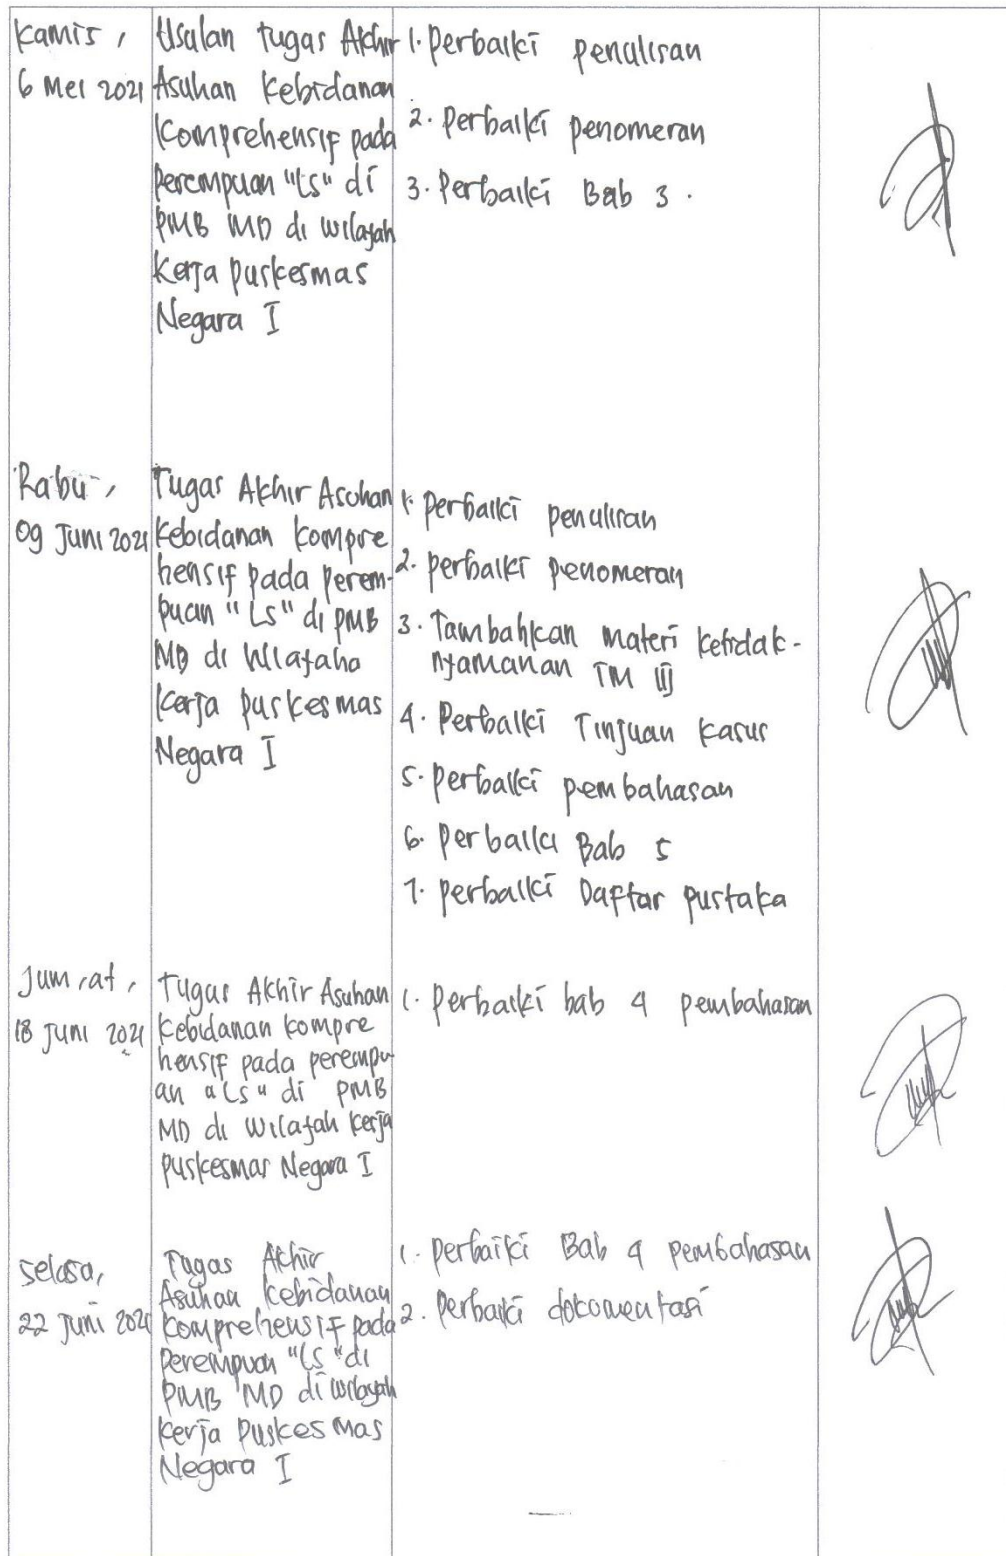 Kamis,
6 Mei 2021
Usulan tugas Akhir
Asuhan Kebidanan
Komprehensif pada
Perempuan "LS" di
PMB MD di wilayah
Kerja puskesmas
Negara I
1. Perbaiki penulisan
2. Perbaiki penomeran
3. Perbaiki Bab 3.
Rabu,
09 Juni 2021
Tugas Akhir Asuhan
Kebidanan kompre
hensif pada perem-
puan "LS" di PMB
MD di Wilayaha
Kerja puskesmas
Negara I
1. Perbaiki penulisan
2. perbaiki penomeran
3. Tambahkan materi ketidak-
nyamanan TM III
4. Perbaiki Tinjuan kasus
5. perbaiki pembahasan
6. Perbaiki Bab 5
7. perbaiki Daftar pustaka
Jum'at,
18 Juni 2021
Tugas Akhir Asuhan
Kebidanan kompre
hensif pada perempu
an "LS" di PMB
MD di wilayah kerja
puskesmas Negara I
1. Perbaiki bab 4 pembahasan
Selasa,
22 Juni 2021
Tugas Akhir
Asuhan kebidanan
komprehensif pada
perempuan "LS" di
PMB MD di wilayah
kerja puskesmas
Negara I
1. Perbaiki Bab 4 pembahasan
2. Perbaiki dokomentasi